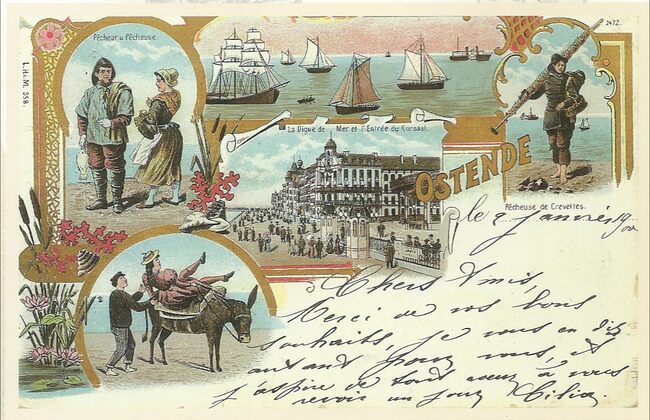 Pêcheur u Pêcheuse.
2472.
L.H.M. 558.
La Digue de Mer et l'Entrée du Kursaal.
OSTENDE
Pêcheuse de Crevettes.
le 2 janvier 1900
Chers Amis,
Merci de vos bons
souhaits, je vous en dis
autant pour vous, et
j'aspire de tout cœur à vous
revoir un jour